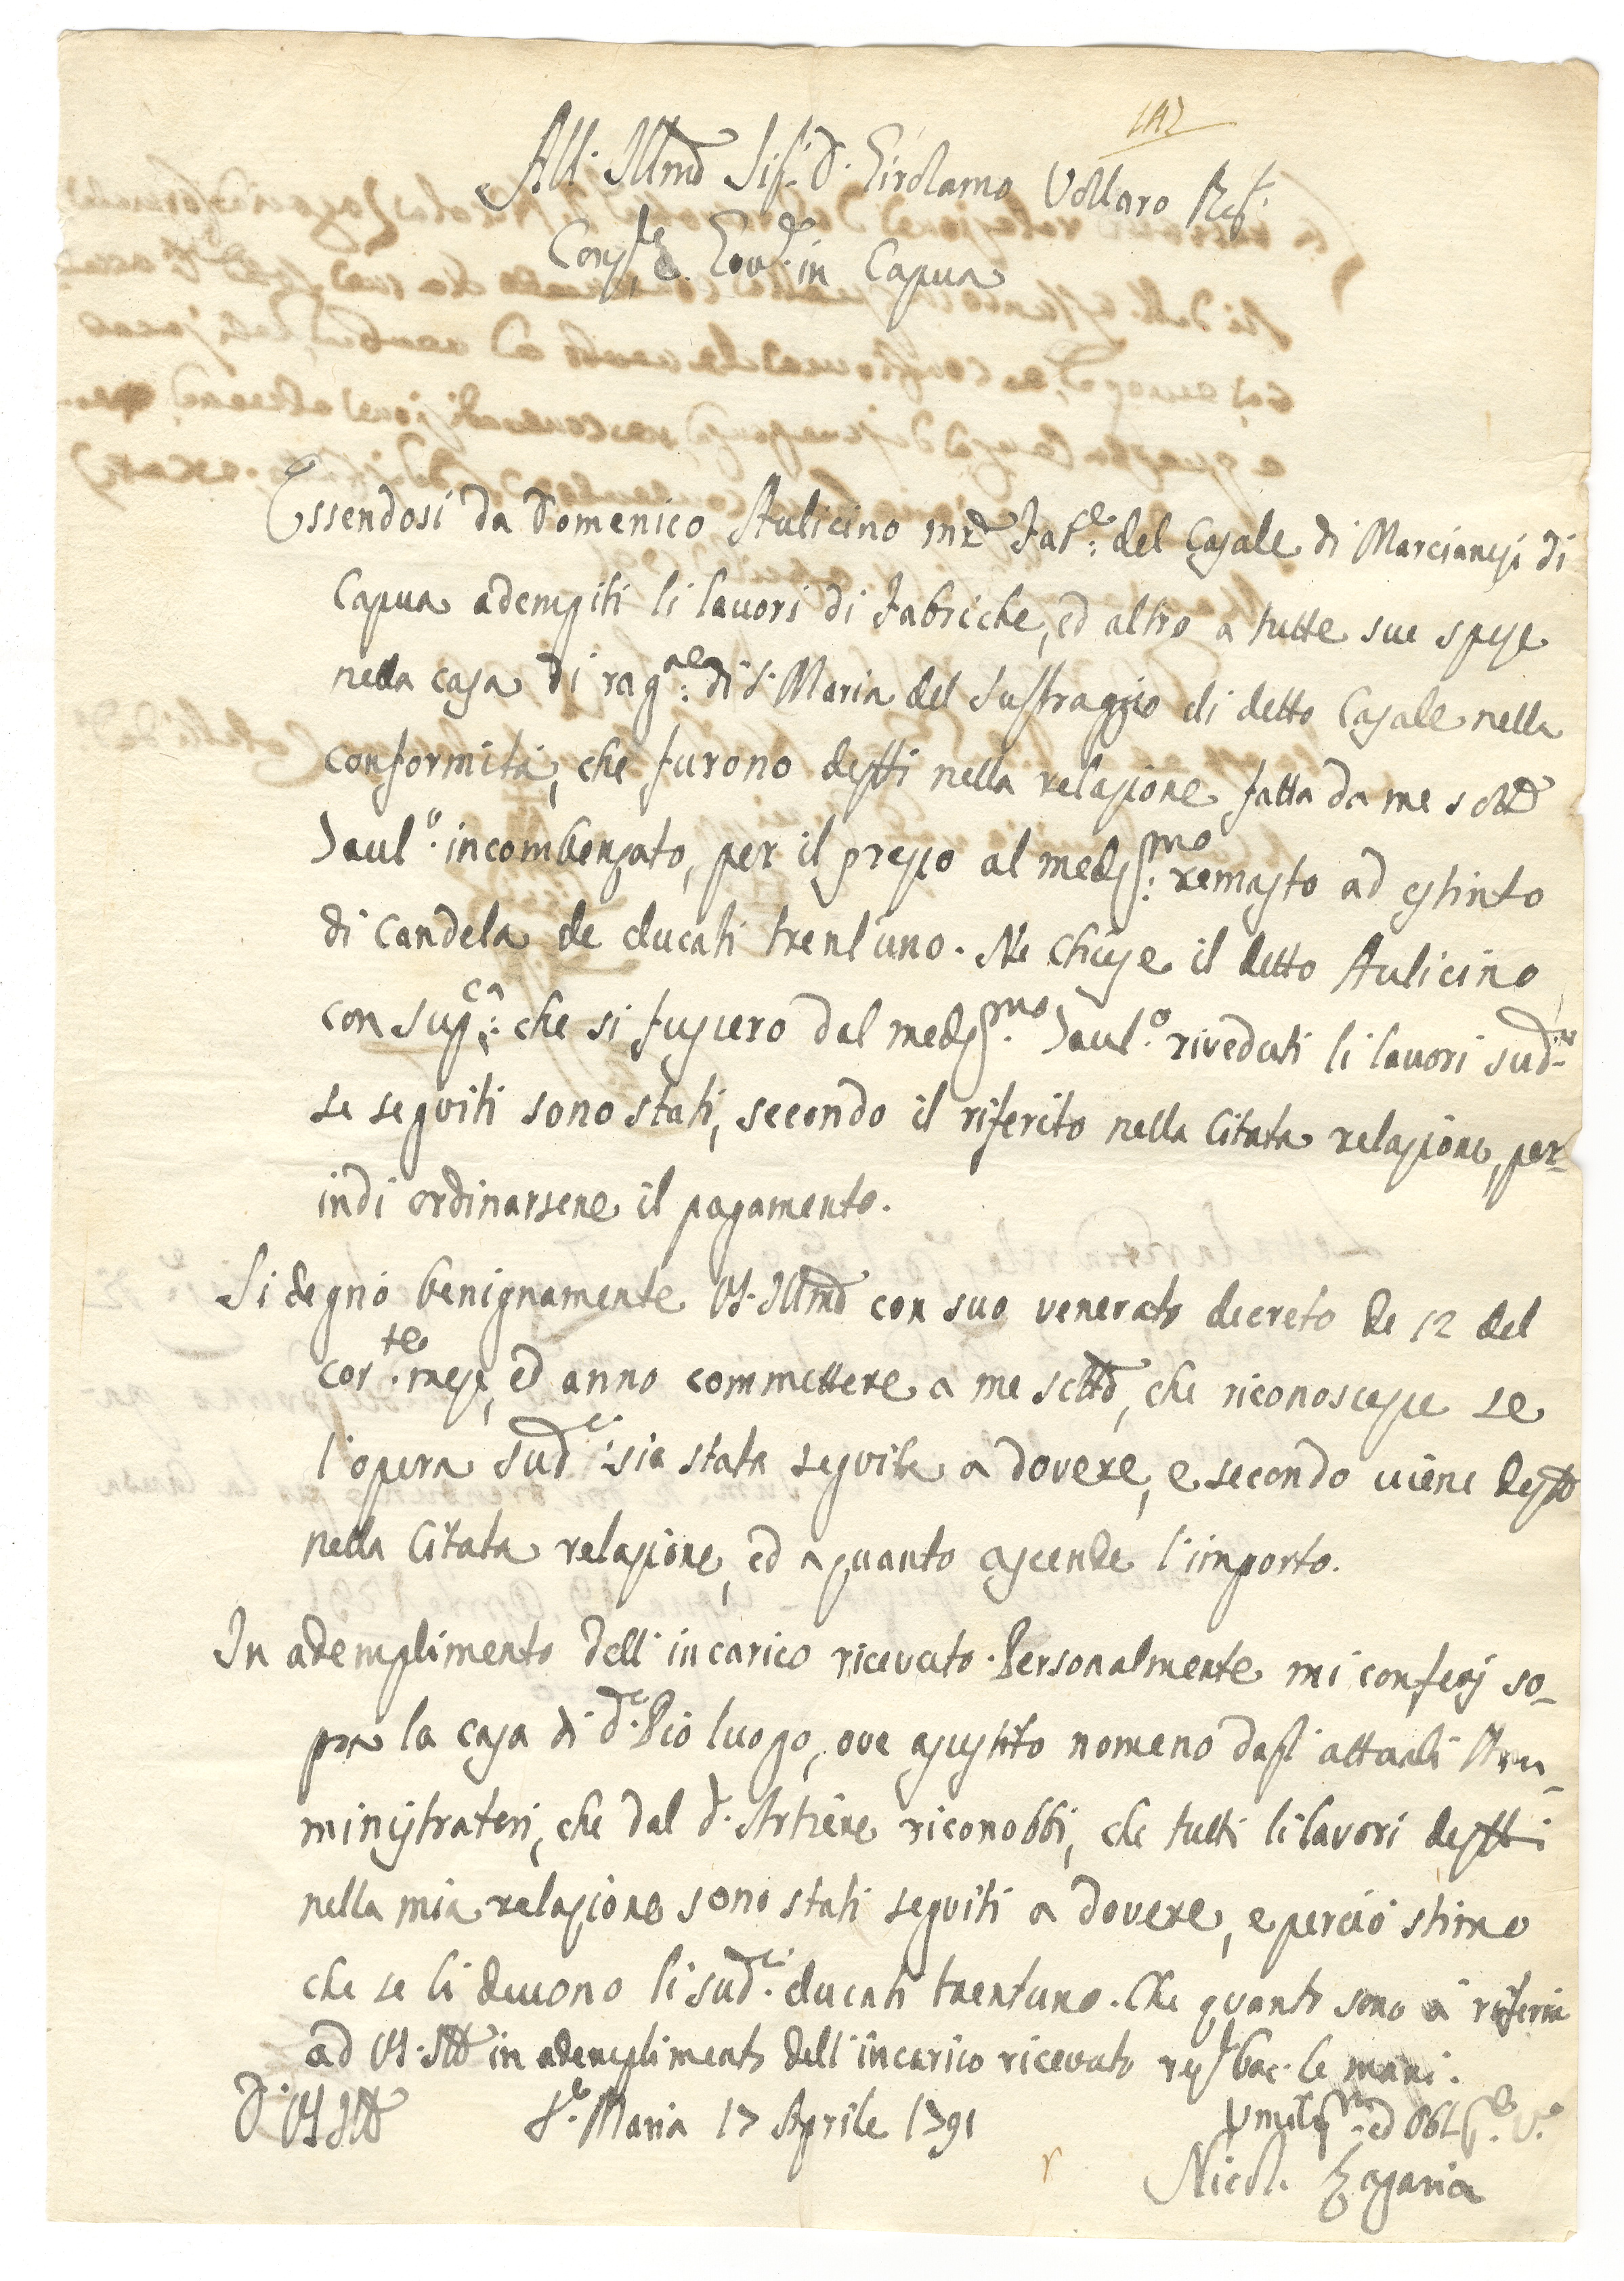 All' Illmo Sig. D. Girolamo Vollaro Reg.
Cons.re e Gov.re in Capua
Essendosi da Domenico Aulicino mro Fab.e: del Casale di Marcianisi di
Capua adempiti li lavori di fabriche, ed altro a tutte sue spese
nella casa di rag.ne: di S. Maria del Suffraggio di detto Casale nella
conformità, che furono destti nella relazione fatta da me sotto
Taul.o incombenzato, per il prezzo al medes.mo: remasto ad estinto
di candela de ducati trent'uno. Ne chiese il detto Aulicino
con sup.ca: che si fussero dal medes.mo Taul.o riveduti li lavori sud.i
se seguiti sono stati, secondo il riferito nella citata relazione, per
indi ordinarsene il pagamento.
Si degnò benignamente VS. Illma con suo venerato decreto de 12 del
cor.te mese, ed anno commettere a me sctto, che riconoscesse se
l'opera sud.a sia stata seguita a dovere, e secondo viene destto
nella citata relazione, ed a quanto ascende l'importo.
In adempimento dell'incarico ricevuto. Personalmente mi conferj so-
pra la casa di d.o Pio luogo, ove assistito nomeno dagl'attuali Am-
ministratori, che dal d.o Artiere riconobbi, che tutti li lavori destti
nella mia relazione sono stati seguiti a dovere, e perciò stimo
che se li devono li sud.i ducati trentuno. Che quanto sono a riferire
ad VS. Illma in adempimento dell'incarico ricevuto resp.te bac. le mani.
D. VS Illma S.a Maria 17 Aprile 1791 Umiliss.mo ed Obl. S.e V.o
Nicol. Zagaria